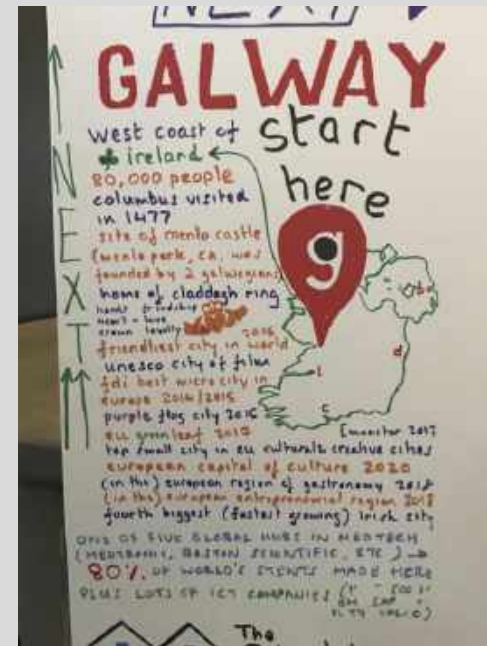 NEXT
GALWAY
west coast of
ireland
start
here
80,000 people
columbus visited
in 1477
site of menlo castle
(menlo park, ca. was
founded by 2 galwegians)
home of claddagh ring
hands friendship
heart = love
crown loyalty
2016
friendliest city in world
unesco city of film
fdi best micro city in
europe 2014/2015
purple flag city 2015
eu green leaf 2017
[monitor 2017
top small city in eu cultural & creative cities
european capital of culture 2020
(in the) european region of gastronomy 2018
(in the) european entrepreneurial region 2018
fourth biggest (fastest growing) irish city
ONE OF FIVE GLOBAL HUBS IN MEDTECH
(MEDTRONIC, BOSTON SCIENTIFIC, ETC)
80% OF WORLD'S STENTS MADE HERE
PLUS LOTS OF ICT COMPANIES
NEXT
g
b
d
l
c
The